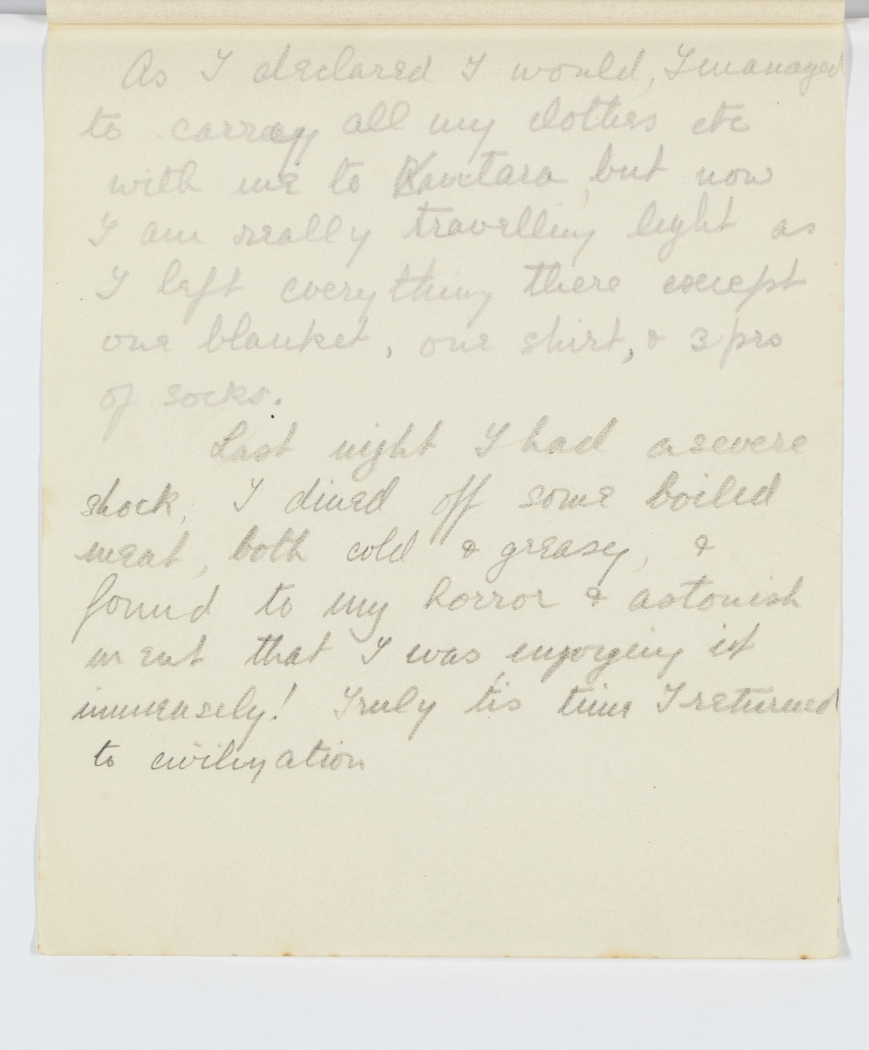 As I declared I would, I managed
to carray all my clothes etc
with me to Kantara, but now
I am really travelling light as
I left everything there except
one blanket, one shirt, & 3 prs
of socks.
Last night I had a severe
shock, I dined off some boiled
meat, both cold & greasy, &
found to my horror & astonish
ment that I was enjoying it
immensely! Truly tis time I returned
to civilization